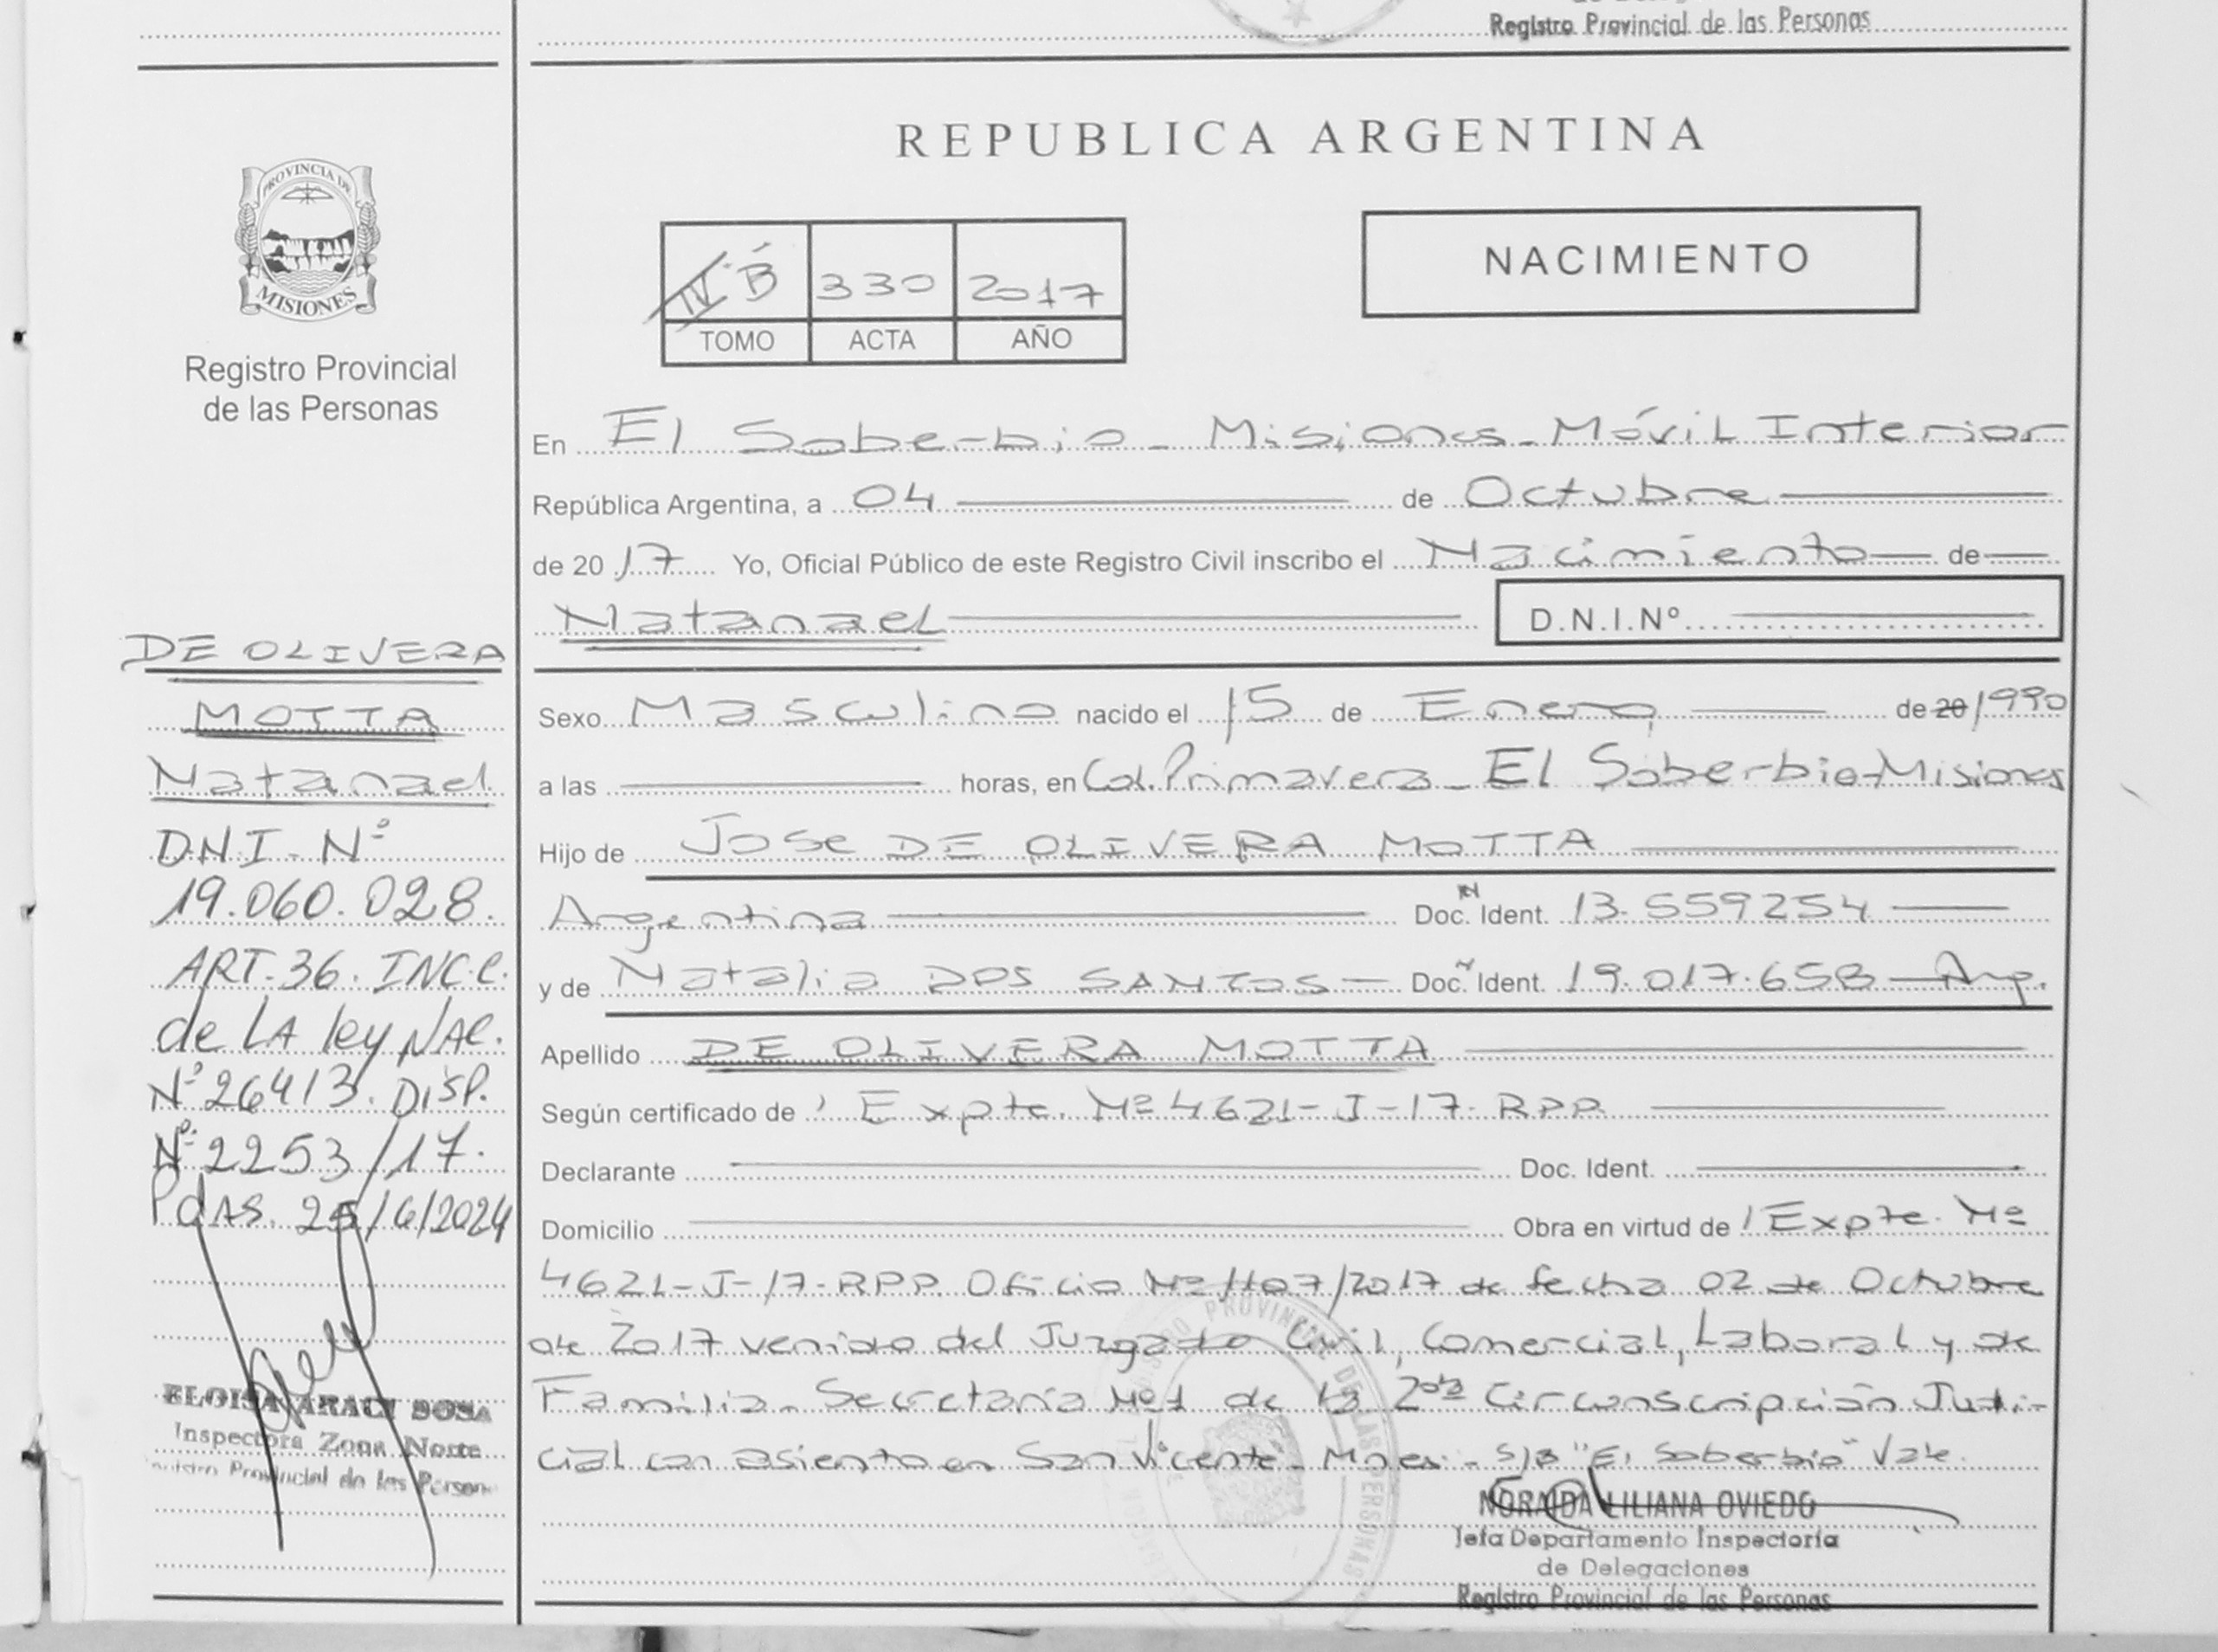 Registro Provincial de las Personas
PROVINCIA DE
MISIONES
Registro Provincial
de las Personas
DE OLIVERA
MOTTA
Natanael
DNI-Nº
19.060.028.
ART-36. INC.C.
de LA ley NAC.
Nº 26413. DISP.
Nº 2253/17.
Pdas. 25/6/2024
ELOISA ARACI SOSA
Inspectora Zona Norte
Registro Provincial de las Person
REPUBLICA ARGENTINA
IV B 330 2017
TOMO ACTA AÑO
NACIMIENTO
En El Soberbio - Misiones - Móvil Interior
República Argentina, a 04 de Octubre
de 2017 Yo, Oficial Público de este Registro Civil inscribo el Nacimiento de
Natanael D.N.I.Nº
Sexo Masculino nacido el 15 de Enero de 20 1990
a las horas, en Col. Primavera - El Soberbio-Misiones
Hijo de Jose DE OLIVERA MOTTA
Argentina Doc. Ident. 13.559254
y de Natalia DOS SANTOS - Doc. Ident. 19.017.658 - Arg.
Apellido DE OLIVERA MOTTA
Según certificado de Expte. Nº 4621-J-17-RPP
Declarante Doc. Ident.
Domicilio Obra en virtud de Expte. Nº
4621-J-17-RPP. Oficio Nº 1107/2017 de fecha 02 de Octubre
de 2017 venido del Juzgado Civil, Comercial, Laboral y de
Familia - Secretaría Nº1 de la 2da Circunscripción Judi-
cial con asiento en San Vicente - Mnes. - S/B "El Soberbio" Vale.
NORAIDA LILIANA OVIEDO
Jefa Departamento Inspectoría
de Delegaciones
Registro Provincial de las Personas